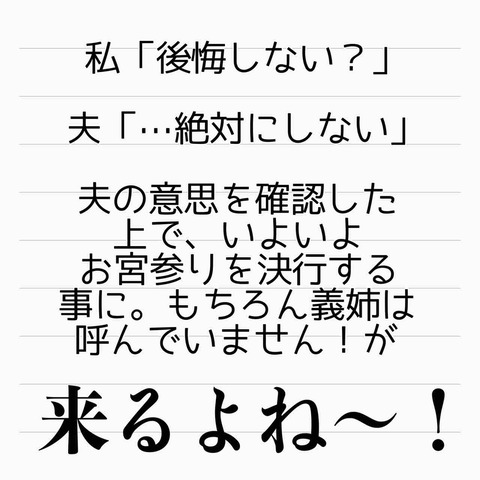 私「後悔しない？」
夫「…絶対にしない」
夫の意思を確認した
上で、いよいよ
お宮参りを決行する
事に。もちろん義姉は
呼んでいません！が
来るよね〜！